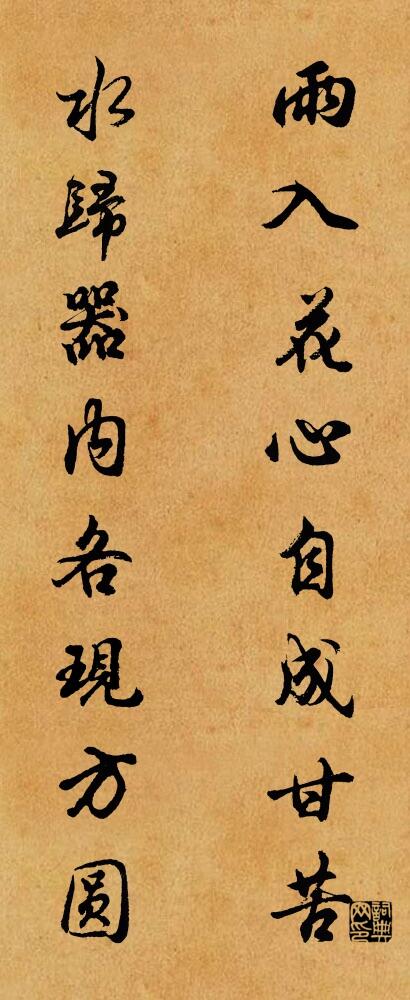 雨入花心自成甘苦
水歸器內各現方圓
詞典網印